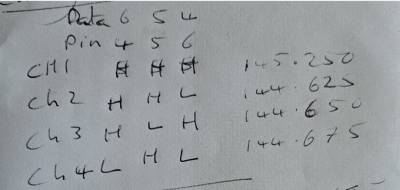 Data 6 5 4
Pin 4 5 6
CH1 H H H 145.250
Ch2 H H L 144.625
Ch3 H L H 144.650
Ch4 L H L 144.675